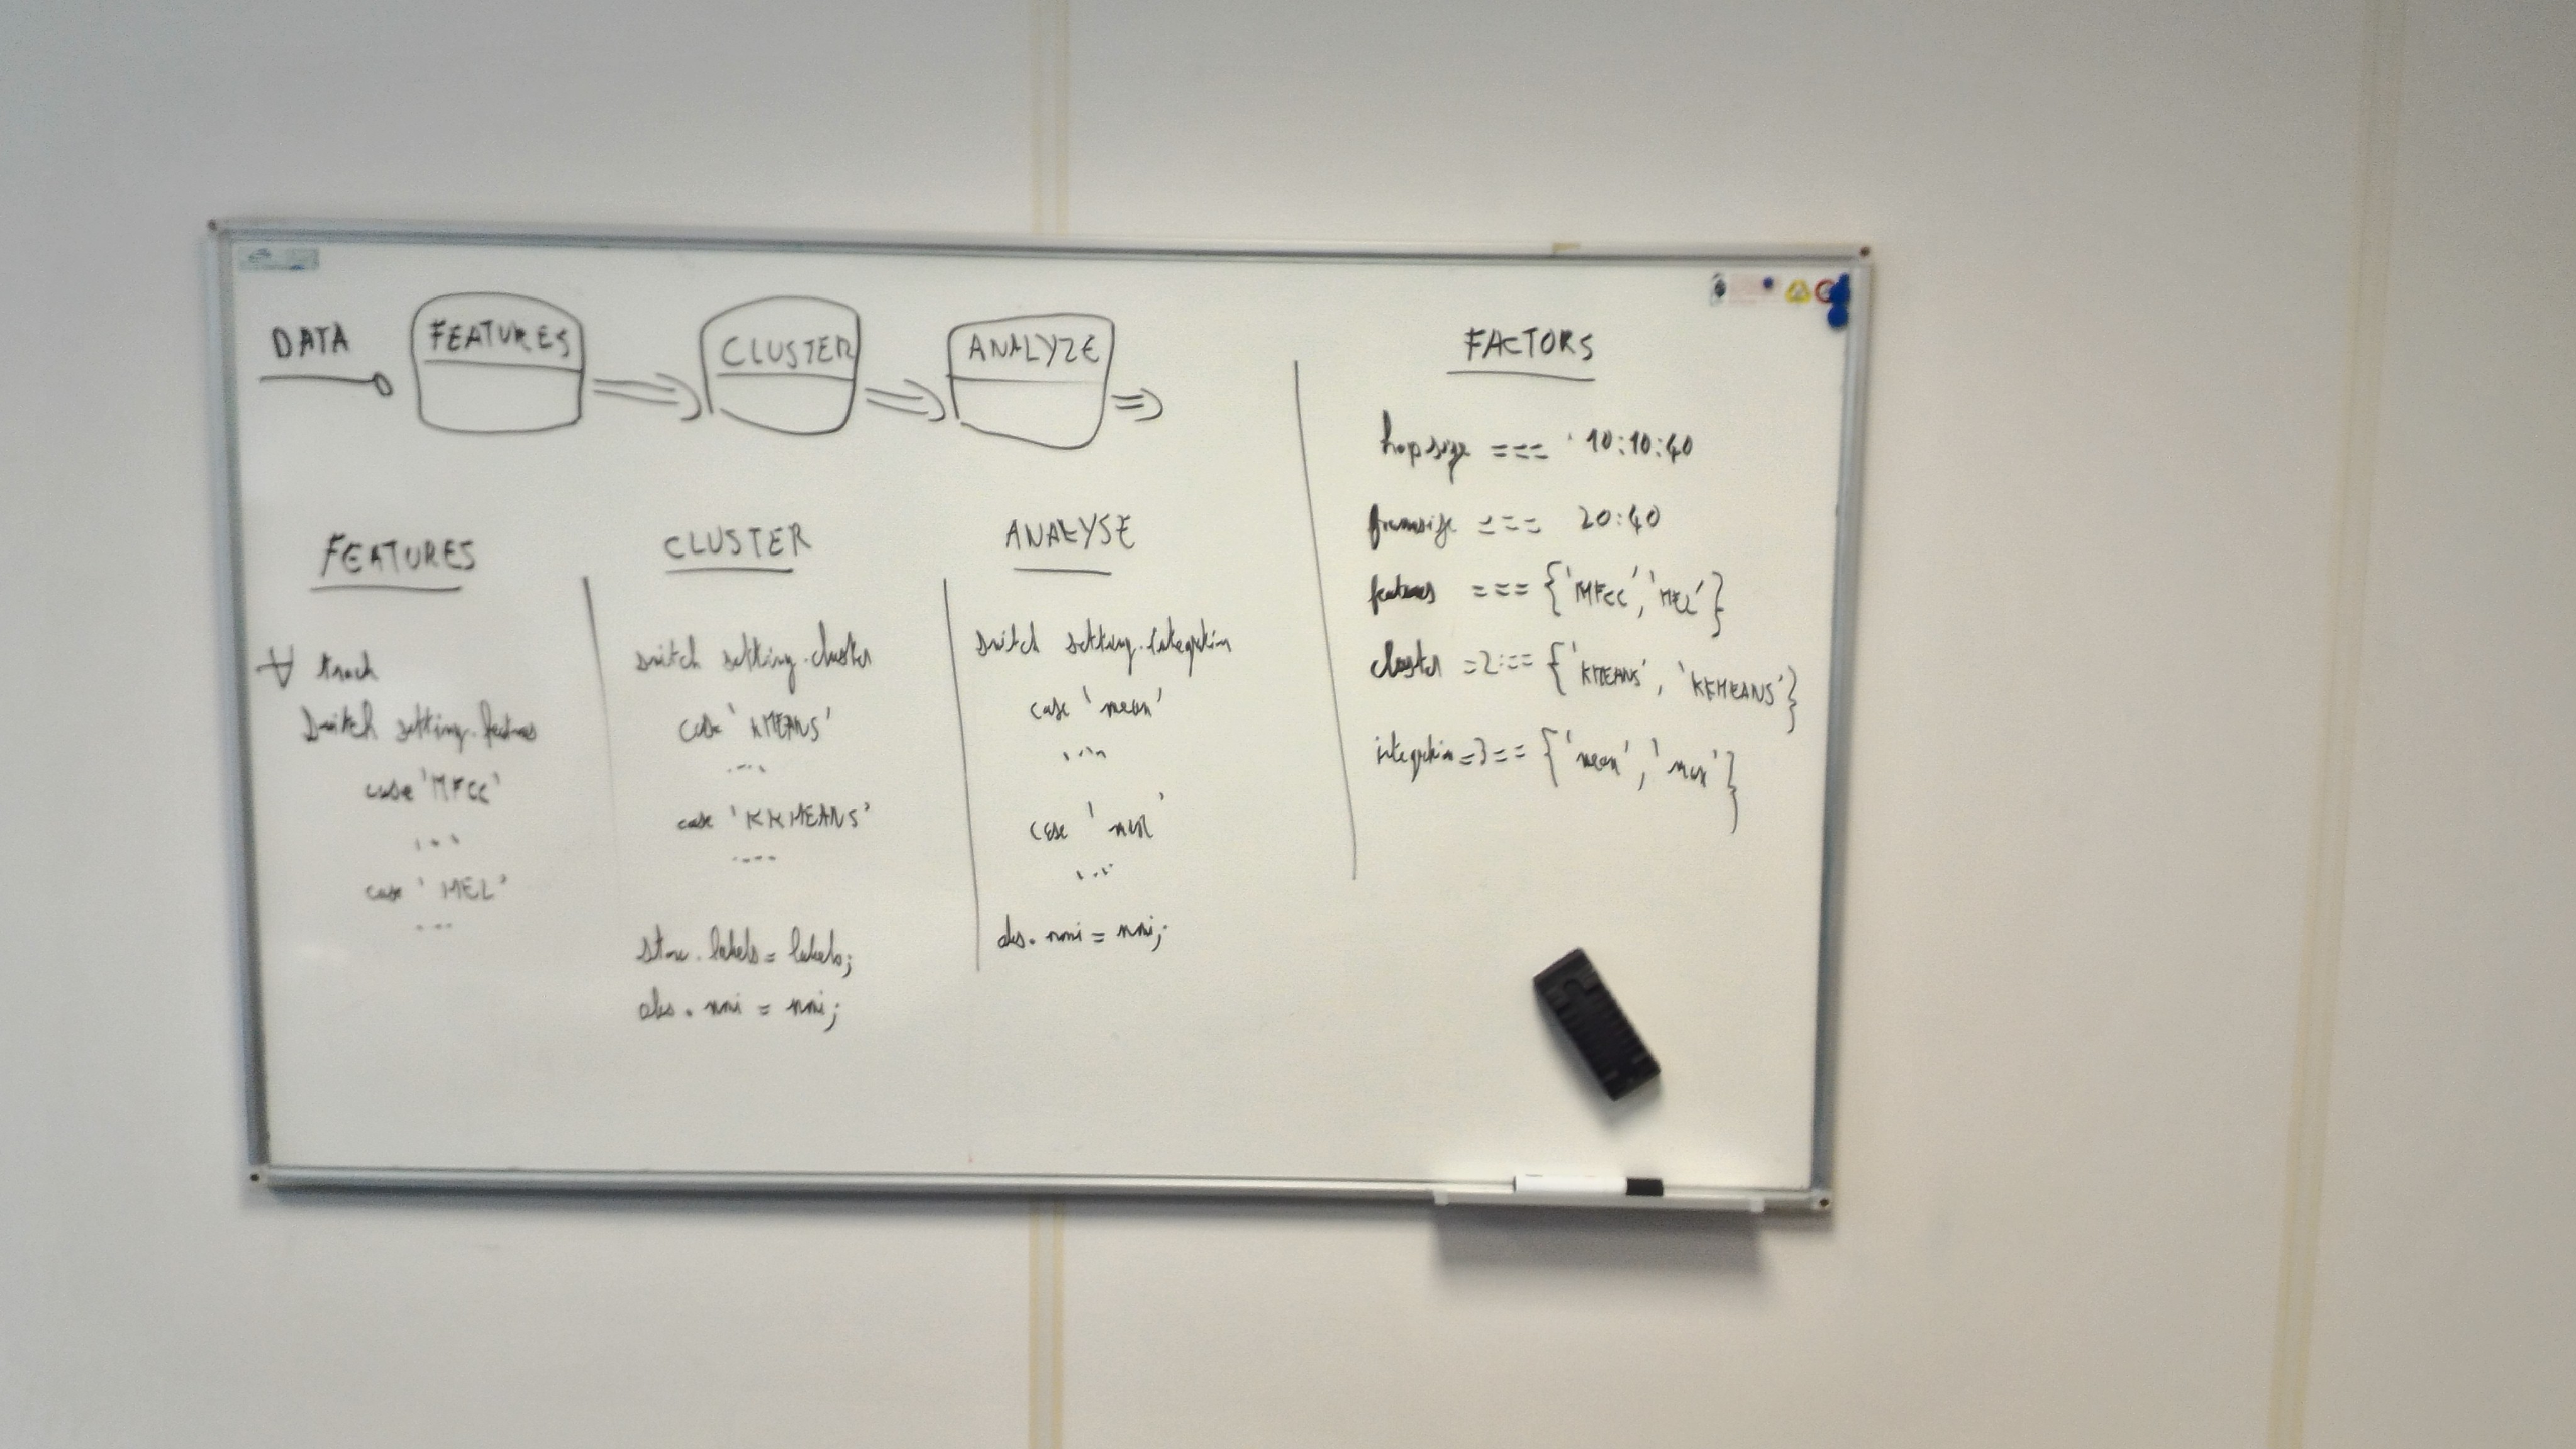 DATA
FEATURES
CLUSTER
ANALYZE
FEATURES
∀ track
Switch setting.features
case 'MFCC'
...
case 'MEL'
...
CLUSTER
switch setting.cluster
case 'KMEANS'
....
case 'KKMEANS'
....
store.labels = labels;
obs.nmi = nmi;
ANALYSE
switch setting.integration
case 'mean'
....
case
....
obs.nmi = nmi;
FACTORS
hopsize === 10:10:40
framesize === 20:40
features === {'MFCC', 'MEL'}
cluster =2:== {'KMEANS', 'KKMEANS'}
integration =3== {'mean',